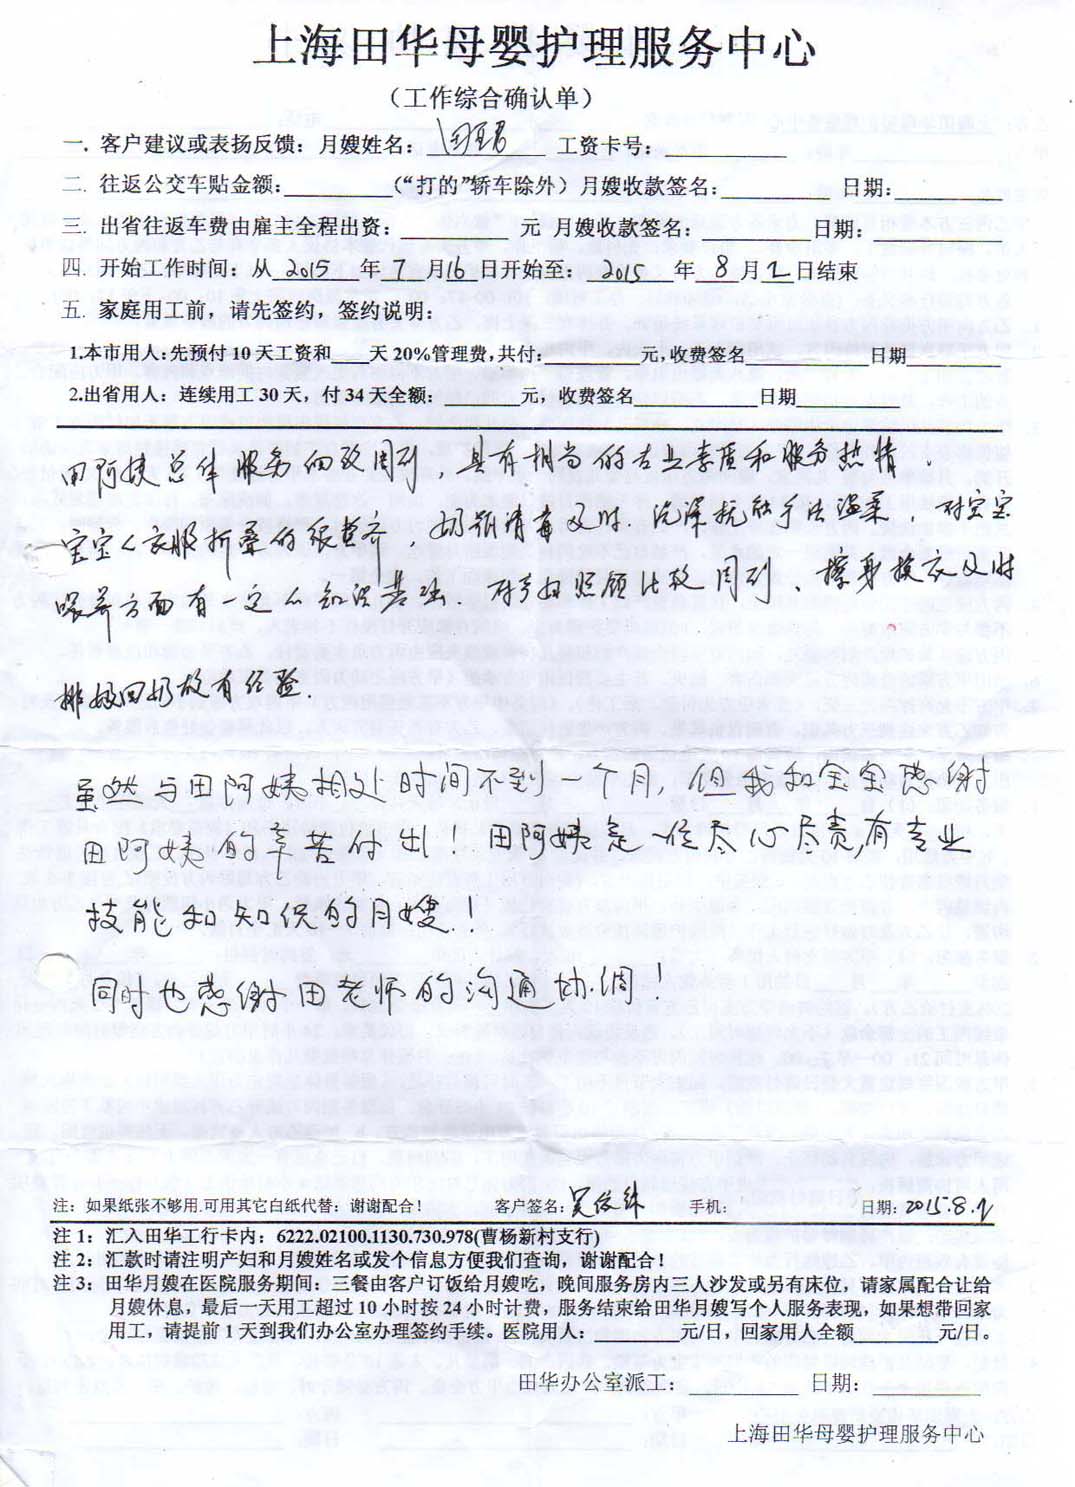 上海田华母婴护理服务中心
（工作综合确认单）
一. 客户建议或表扬反馈：月嫂姓名： 工资卡号：
二. 往返公交车贴金额： （“打的”轿车除外）月嫂收款签名： 日期：
三. 出省往返车费由雇主全程出资： 元 月嫂收款签名： 日期：
四. 开始工作时间：从 2015 年 7 月 16 日开始至： 2015 年 8 月 2 日结束
五. 家庭用工前，请先签约，签约说明：
1.本市用人:先预付10天工资和 天20%管理费,共付: 元,收费签名 日期
2.出省用人：连续用工30天，付34天全额: 元，收费签名 日期
田阿姨总体服务细致周到，具有相当的专业素质和服务热情
宝宝衣服折叠的很整齐，奶瓶清毒及时，洗澡抚触手法温柔 对宝宝
喂养方面有一定的知识基础. 对产妇照顾比较周到 擦身换衣及时
排奶回奶很有经验.
虽然与田阿姨相处时间不到一个月，但我和宝宝感谢
田阿姨的辛苦付出 田阿姨是一位尽心尽责,有专业
技能和知识的月嫂！
同时也感谢田老师的沟通协调！
注：如果纸张不够用.可用其它白纸代替；谢谢配合！ 客户签名: 手机： 日期: 2015.8.2
注1：汇入田华工行卡内：6222.02100.1130.730.978(曹杨新村支行)
注2：汇款时请注明产妇和月嫂姓名或发个信息方便我们查询，谢谢配合！
注3：田华月嫂在医院服务期间：三餐由客户订饭给月嫂吃，晚间服务房内三人沙发或另有床位，请家属配合让给
月嫂休息，最后一天用工超过10小时按24小时计费，服务结束给田华月嫂写个人服务表现，如果想带回家
用工，请提前1天到我们办公室办理签约手续。医院用人： 元/日，回家用人全额 元/日。
田华办公室派工： 日期：
上海田华母婴护理服务中心